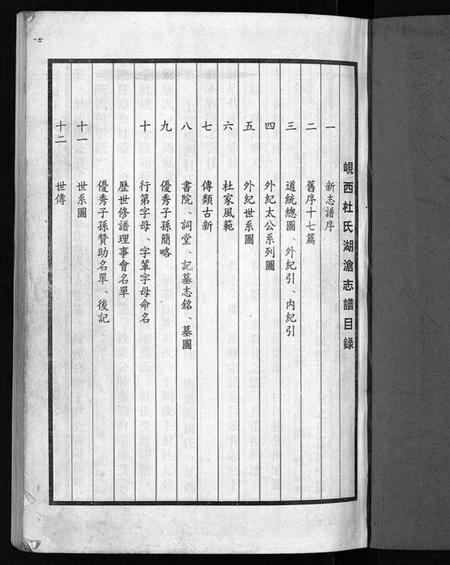 峴西杜氏湖滄志譜目錄
一 新志譜序
二 舊序十七篇
三 道統總圖、外紀引、內紀引
四 外紀太公系列圖
五 外紀世系圖
六 杜家風範
七 傳類古新
八 書院、詞堂、記墓志銘、墓圖
九 優秀子孫簡略
十 行第字母、字輩字母命名
歷世修譜理事會名單
優秀子孫贊助名單、後記
十一 世系圖
十二 世傳